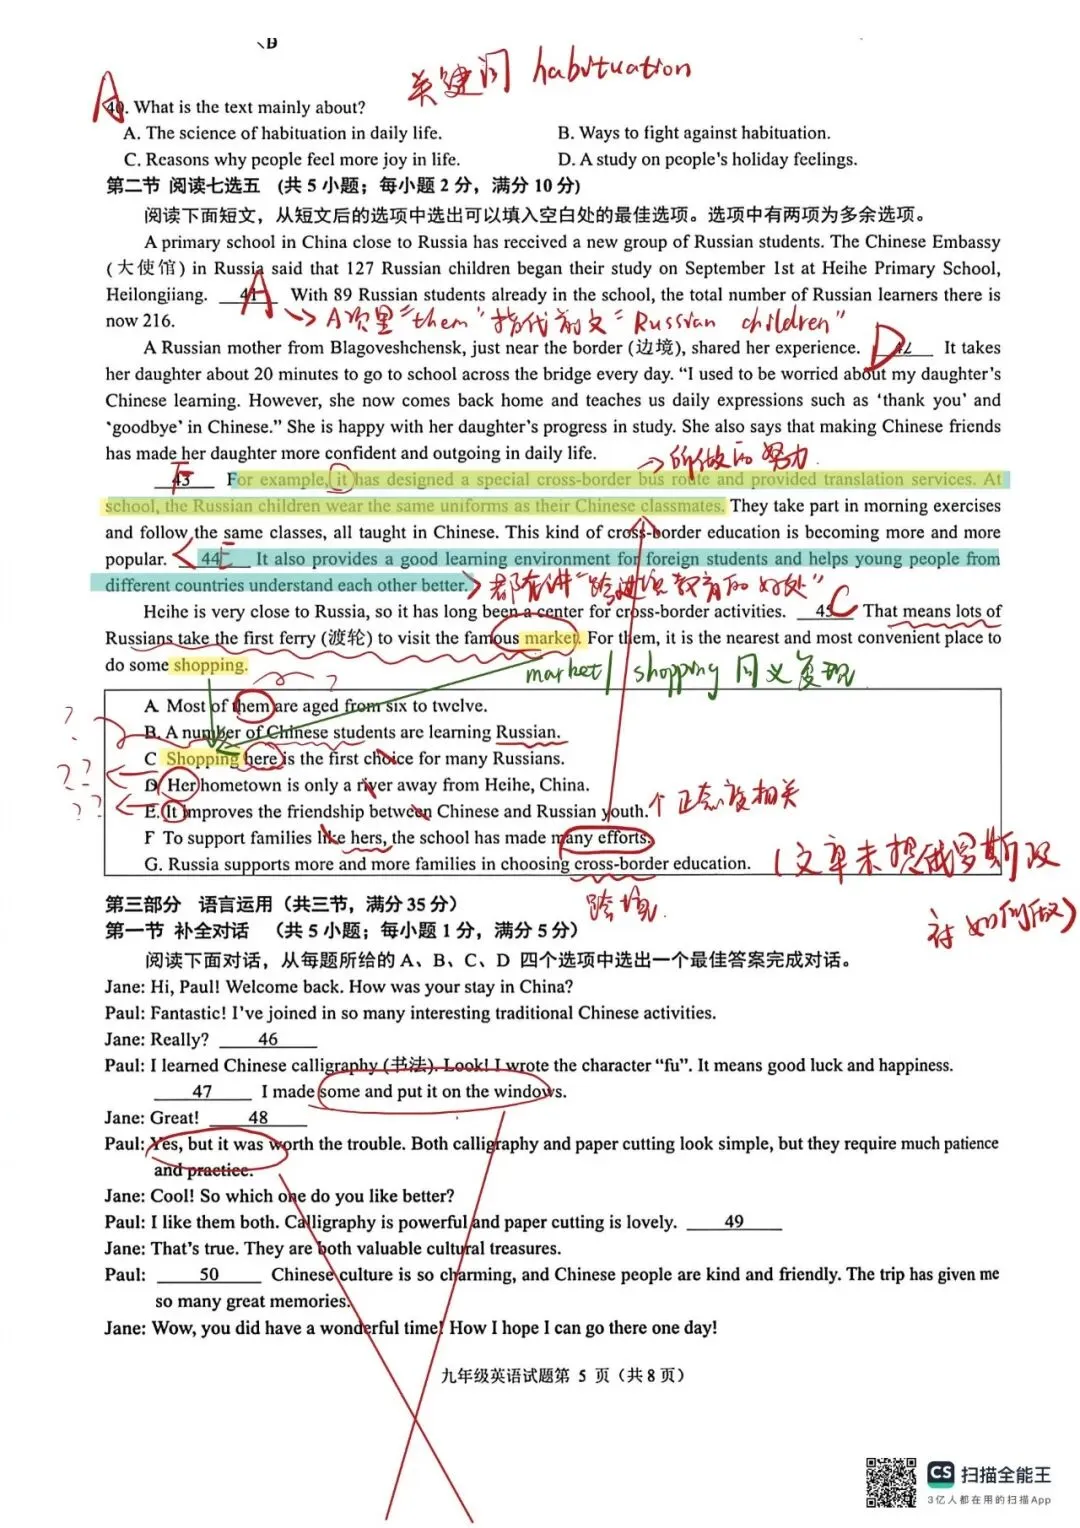 B
关键词 habituation
A
40. What is the text mainly about?
A. The science of habituation in daily life. B. Ways to fight against habituation.
C. Reasons why people feel more joy in life. D. A study on people's holiday feelings.
第二节 阅读七选五 (共 5 小题；每小题 2 分，满分 10 分)
阅读下面短文，从短文后的选项中选出可以填入空白处的最佳选项。选项中有两项为多余选项。
A primary school in China close to Russia has received a new group of Russian students. The Chinese Embassy
(大使馆) in Russia said that 127 Russian children began their study on September 1st at Heihe Primary School,
Heilongjiang. 41 A With 89 Russian students already in the school, the total number of Russian learners there is
now 216.
A项里"them"指代前文"Russian children"
A Russian mother from Blagoveshchensk, just near the border (边境), shared her experience. 42 D It takes
her daughter about 20 minutes to go to school across the bridge every day. "I used to be worried about my daughter's
Chinese learning. However, she now comes back home and teaches us daily expressions such as 'thank you' and
'goodbye' in Chinese." She is happy with her daughter's progress in study. She also says that making Chinese friends
has made her daughter more confident and outgoing in daily life.
所做的努力
43 F For example, it has designed a special cross-border bus route and provided translation services. At
school, the Russian children wear the same uniforms as their Chinese classmates. They take part in morning exercises
and follow the same classes, all taught in Chinese. This kind of cross-border education is becoming more and more
popular. 44 E It also provides a good learning environment for foreign students and helps young people from
different countries understand each other better.
都在讲"跨边境教育的好处"
Heihe is very close to Russia, so it has long been a center for cross-border activities. 45 C That means lots of
Russians take the first ferry (渡轮) to visit the famous market. For them, it is the nearest and most convenient place to
do some shopping.
market/shopping 同义复现
?
A. Most of them are aged from six to twelve.
?
B. A number of Chinese students are learning Russian.
C. Shopping here is the first choice for many Russians.
??
D. Her hometown is only a river away from Heihe, China.
??
E. It improves the friendship between Chinese and Russian youth.
个 正态度相关
F. To support families like hers, the school has made many efforts.
G. Russia supports more and more families in choosing cross-border education.
(文章未提俄罗斯政
府如何做)
跨境
第三部分 语言运用（共三节，满分 35 分）
第一节 补全对话 （共 5 小题；每小题 1 分，满分 5 分）
阅读下面对话，从每题所给的 A、B、C、D 四个选项中选出一个最佳答案完成对话。
Jane: Hi, Paul! Welcome back. How was your stay in China?
Paul: Fantastic! I've joined in so many interesting traditional Chinese activities.
Jane: Really? 46
Paul: I learned Chinese calligraphy (书法). Look! I wrote the character "fu". It means good luck and happiness.
47 I made some and put it on the windows.
Jane: Great! 48
Paul: Yes, but it was worth the trouble. Both calligraphy and paper cutting look simple, but they require much patience
and practice.
Jane: Cool! So which one do you like better?
Paul: I like them both. Calligraphy is powerful and paper cutting is lovely. 49
Jane: That's true. They are both valuable cultural treasures.
Paul: 50 Chinese culture is so charming, and Chinese people are kind and friendly. The trip has given me
so many great memories.
Jane: Wow, you did have a wonderful time! How I hope I can go there one day!
九年级英语试题第 5 页（共 8 页）
CS 扫描全能王
3亿人都在用的扫描App